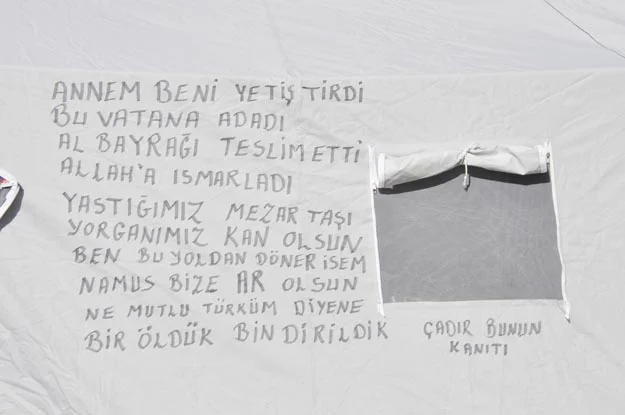 ANNEM BENİ YETİŞTİRDİ
BU VATANA ADADI
AL BAYRAĞI TESLİM ETTİ
ALLAH'A ISMARLADI
YASTIĞIMIZ MEZAR TAŞI
YORGANIMIZ KAN OLSUN
BEN BU YOLDAN DÖNER İSEM
NAMUS BİZE AR OLSUN
NE MUTLU TÜRKÜM DİYENE
BİR ÖLDÜK BİN DİRİLDİK
ÇADIR BUNUN
KANITI